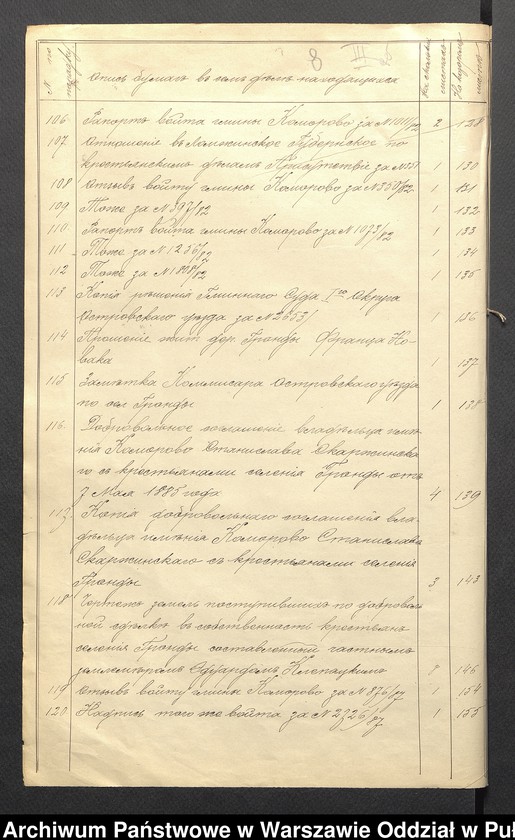 8 III
№ по порядку
Опись бумагъ въ семъ дѣлѣ находящихся
На сколькихъ листахъ
На которомъ листѣ
106 Рапортъ войта гмины Коморово за № /82 2 128
107 Отношеніе въ Ломжинское Губернское по
крестьянскимъ дѣламъ Присутствіе за № 1 130
108 Отзывъ войту гмины Коморово за № 350/82 1 131
109 Тоже за № 397/82 1 132
110 Рапортъ войта гмины Коморово за № 1073/82 1 133
111 Тоже за № 1256/82 1 134
112 Тоже за № 1818/82 1 135
113 Копія рѣшенія Гминнаго Суда Iго Округа
Островскаго уѣзда за № 2653/ 1 136
114 Прошеніе жит. дер. Гронды Франца Но-
вака 1 137
115 Замѣтка Коммисара Островскаго уѣзда
по сел. Гронды 1 138
116 Добровольное соглашеніе владѣльца имѣ-
нія Коморово Станислава Скаржинска-
го съ крестьянами селенія Гронды отъ
7 Мая 1885 года 4 139
117 Копія добровольнаго соглашенія вла-
дѣльца имѣнія Коморово Станислава
Скаржинскаго съ крестьянами селенія
Гронды 3 143
118 Чертежъ земель поступившихъ по доброволь
ной сдѣлкѣ въ собственность крестьянъ
селенія Гронды составленный частнымъ
землемѣромъ Эдуардомъ 8 146
119 Отзывъ войту гмины Коморово за № 876/87 1 154
120 Надпись того же войта за № 2726/87 1 155
Archiwum Państwowe w Warszawie Oddział w Puł